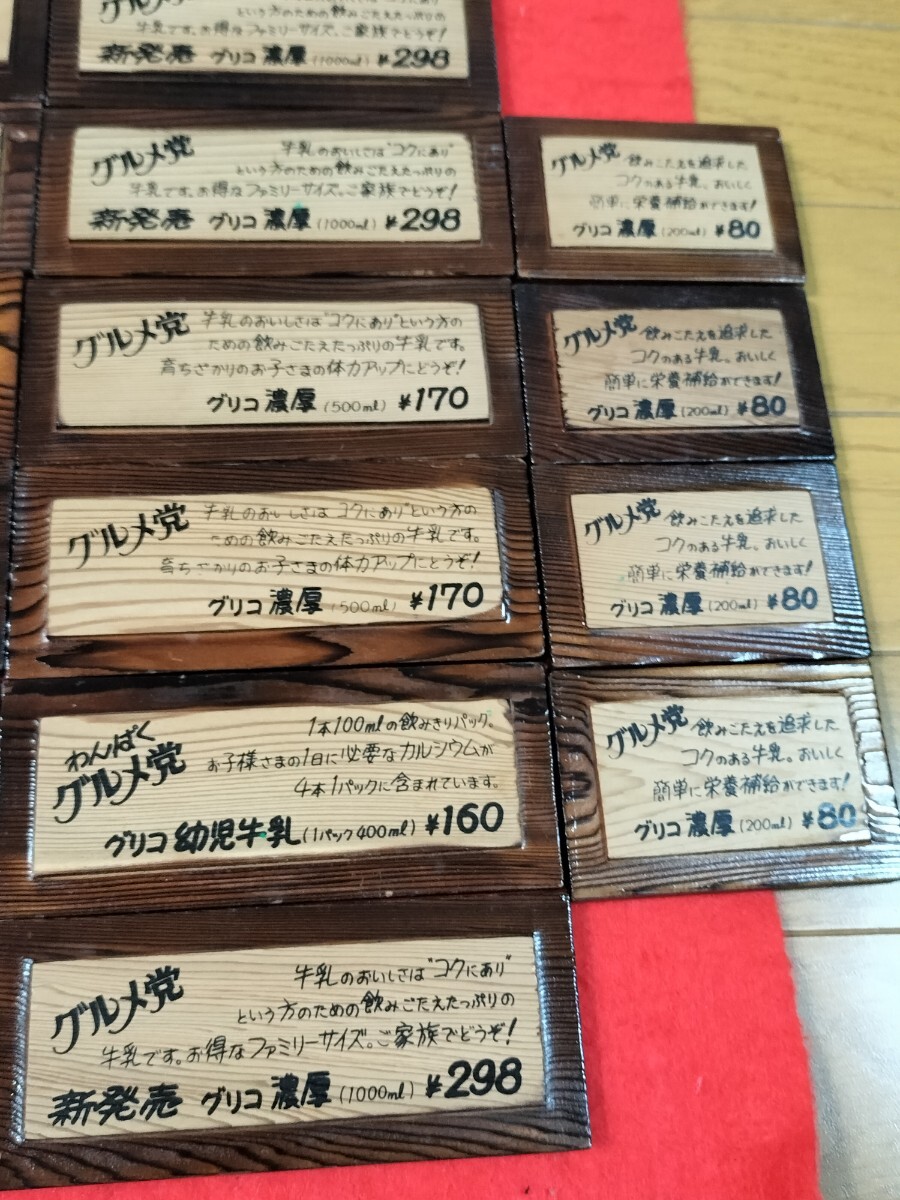 という方のための飲みごたえたっぷりの
牛乳です。お得なファミリーサイズ。ご家族でどうぞ!
新発売 グリコ 濃厚 (1000ml) ¥298
グルメ党
牛乳のおいしさは"コクにあり"
という方のための飲みごたえたっぷりの
牛乳です。お得なファミリーサイズ。ご家族でどうぞ!
新発売 グリコ 濃厚 (1000ml) ¥298
グルメ党
牛乳のおいしさは"コクにあり"という方の
ための飲みごたえたっぷりの牛乳です。
育ちざかりのお子さまの体力アップにどうぞ!
グリコ 濃厚 (500ml) ¥170
グルメ党
牛乳のおいしさは コクにあり"という方の
ための飲みごたえたっぷりの牛乳です。
育ちざかりのお子さまの体力アップにどうぞ!
グリコ 濃厚 (500ml) ¥170
わんぱく
グルメ党
1本100mlの飲みきりパック。
お子様さまの1日に必要なカルシウムが
4本1パックに含まれています。
グリコ 幼児牛乳 (1パック400ml) ¥160
グルメ党
牛乳のおいしさは"コクにあり"
という方のための飲みごたえたっぷりの
牛乳です。お得なファミリーサイズ。ご家族でどうぞ!
新発売 グリコ 濃厚 (1000ml) ¥298
グルメ党
飲みごたえを追求した
コクのある牛乳。おいしく
簡単に栄養補給ができます!
グリコ 濃厚 (200ml) ¥80
グルメ党
飲みごたえを追求した
コクのある牛乳。おいしく
簡単に栄養補給ができます!
グリコ 濃厚 (200ml) ¥80
グルメ党
飲みごたえを追求した
コクのある牛乳。おいしく
簡単に栄養補給ができます!
グリコ 濃厚 (200ml) ¥80
グルメ党
飲みごたえを追求した
コクのある牛乳。おいしく
簡単に栄養補給ができます!
グリコ 濃厚 (200ml) ¥80